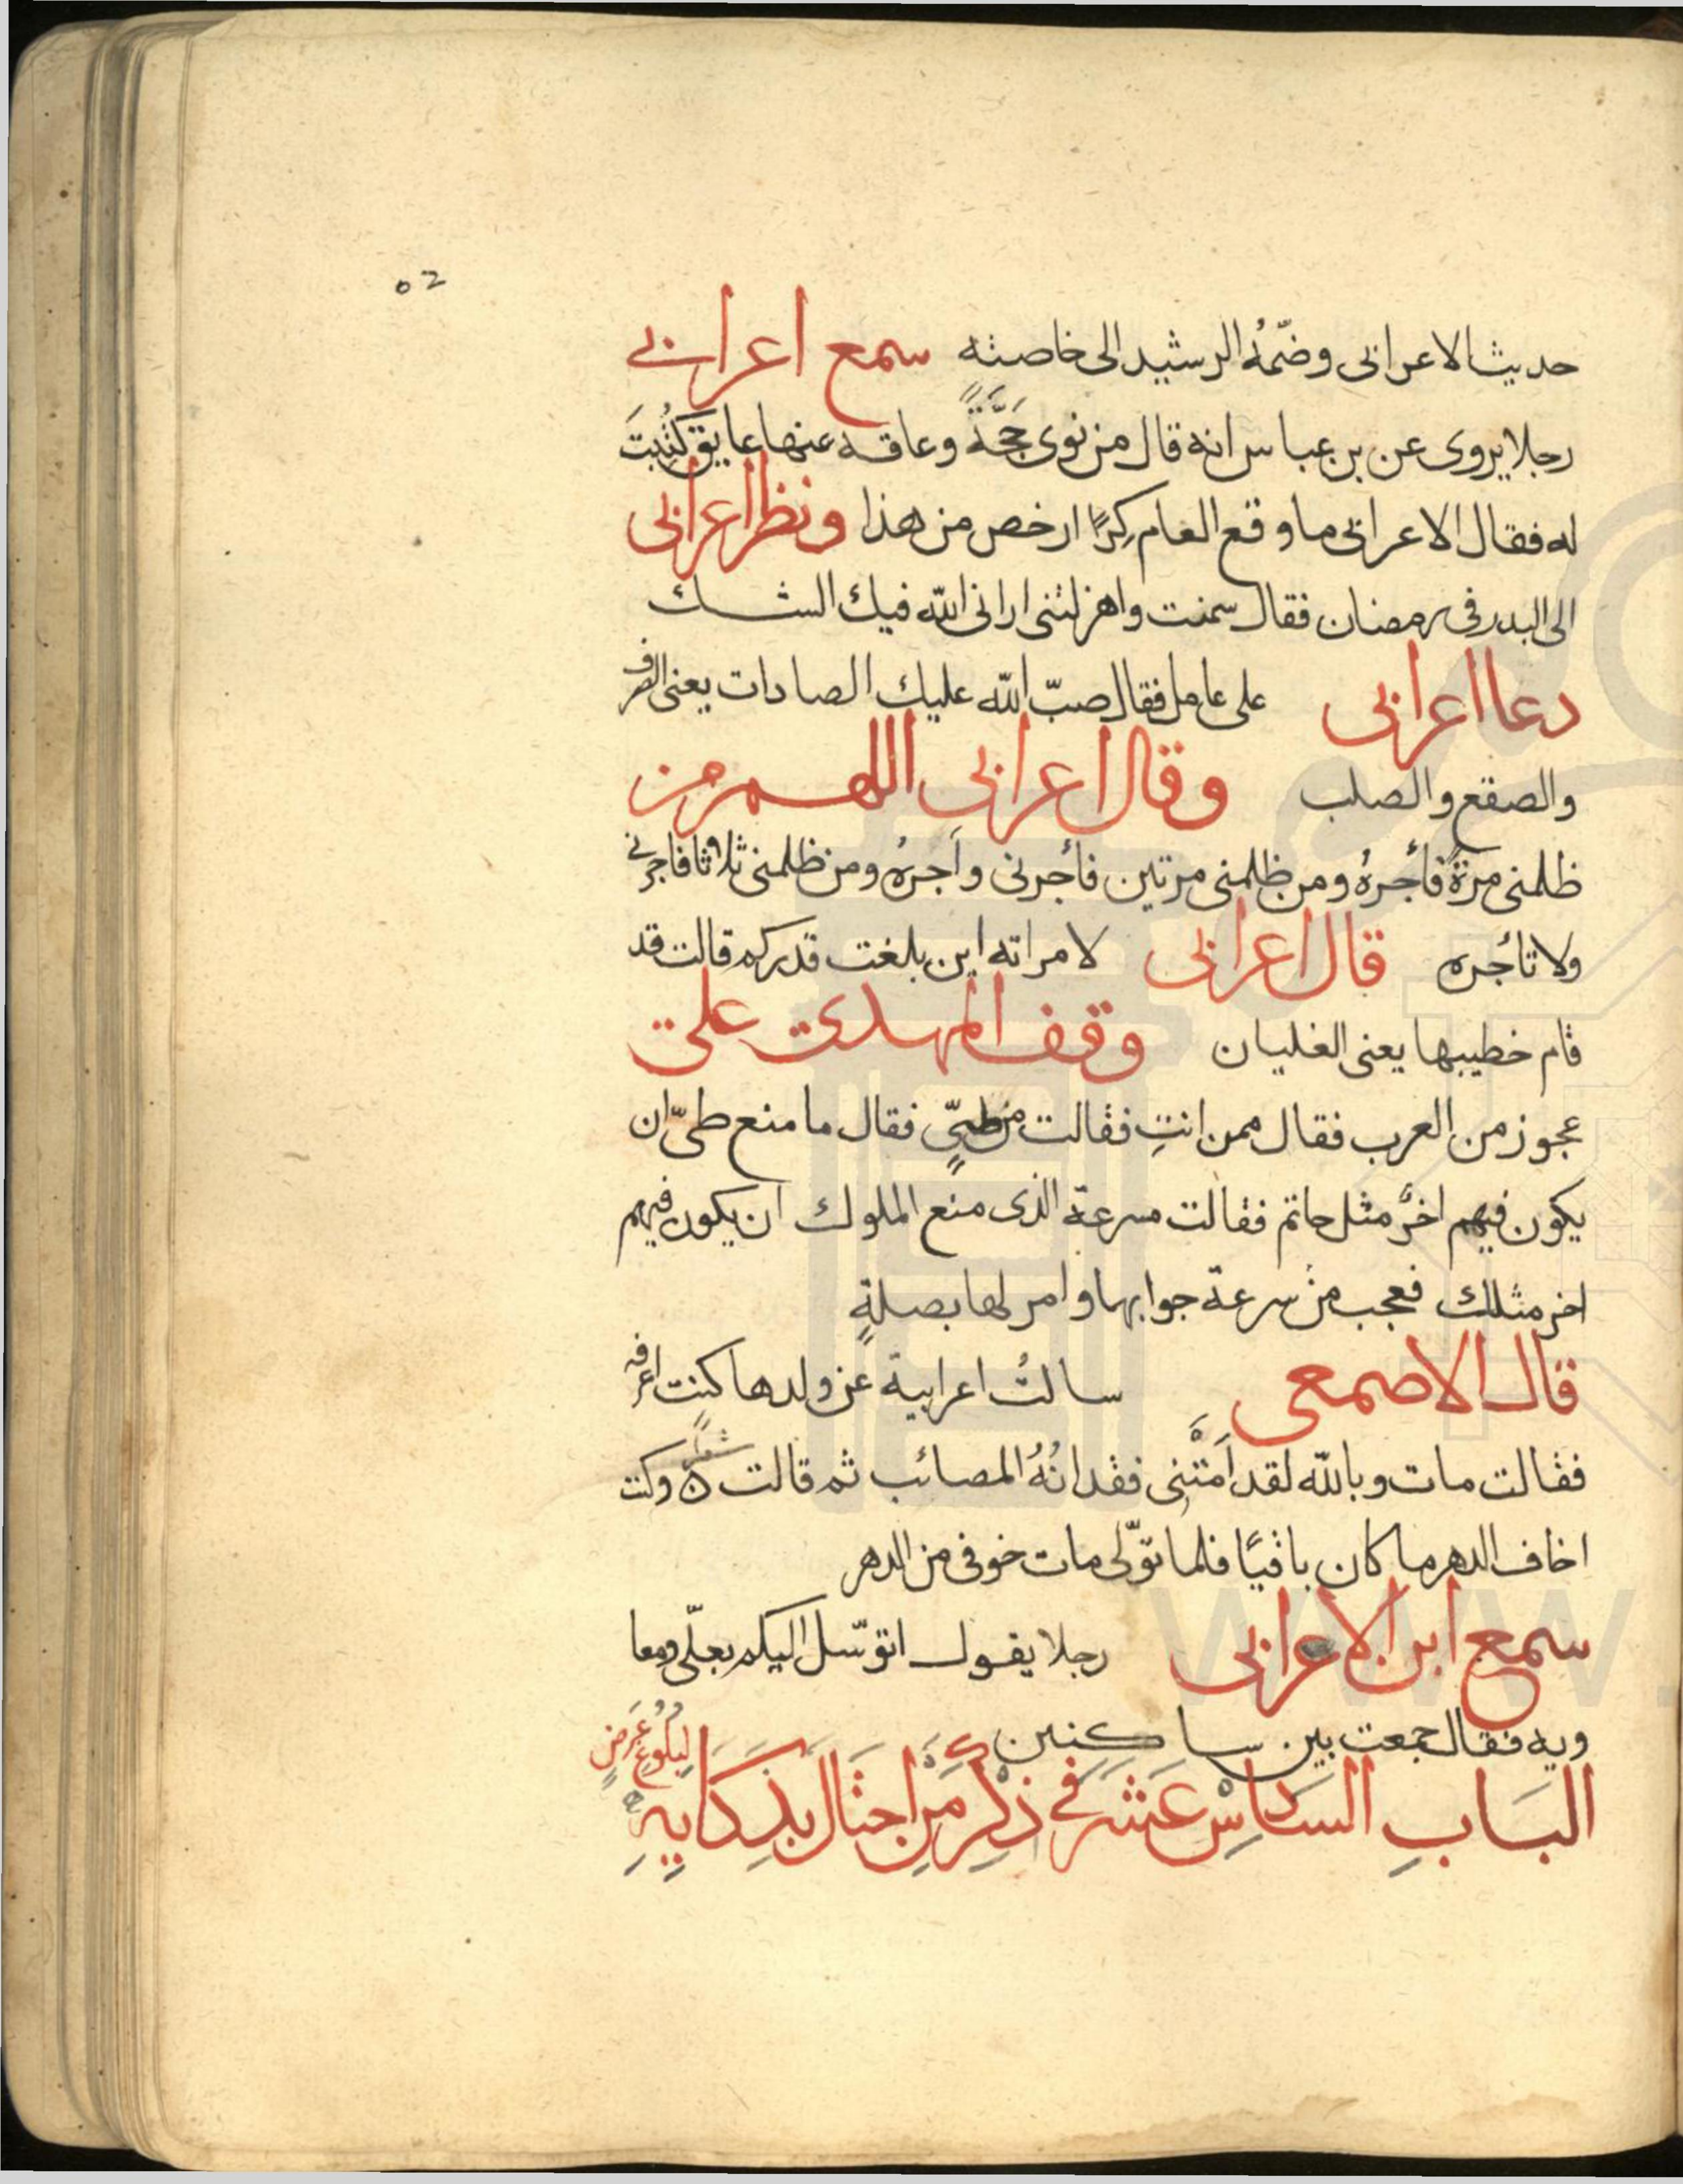 ٥٢
حديث الاعرابى وضمّهُ الرشيد الى خاصته سمع اعرابى
رجلا يروى عن بن عباس انه قال من نوى حَجَّةً وعاقه عنها عايق كُتِبَت
له فقال الاعرابى ما وقع العام كِرًا ارخص من هذا ونظر اعرابى
الى البدر فى رمضان فقال سمنت واهزلتنى ارانى الله فيك الشك
دعا اعرابى على عامل فقال صبّ الله عليك الصادات يعنى الصرف
والصقع والصلب وقال اعرابى اللهم من
ظلمنى مرةً فأجرهُ ومن ظلمنى مرتين فأجرنى وأجرهُ ومن ظلمنى ثلاثا فاجرنى
ولا تأجره قال اعرابى لامراته اين بلغت قدركم قالت قد
قام خطيبها يعنى الغليان وقف المهدى على
عجوز من العرب فقال ممن انتِ فقالت من طىٍّ فقال ما منع طىّ ان
يكون فيهم اخرُ مثل حاتم فقالت مسرعة الذى منع الملوك ان يكون فيهم
اخر مثلك فعجب من سرعة جوابها وامر لها بصلةٍ
قال الاصمعى سالتُ اعرابية عن ولدها كنت اعرفه
فقالت مات وبالله لقد اَمَّتَنِى فقدانُهُ المصائب ثم قالت شعرًا ٥ وكنت
اخاف الدهر ما كان باقيًا فلما تولّى مات خوفى من الدهر
سمع ابن الاعرابى رجلا يقول اتوسّل اليكم بعلّى ومعا
ويه فقال جمعت بين ساكنين
البَاب السادِس عَشر فى ذكرِ مَن احتَال بذكَايهِ لِبُلُوغ غَرَضٍ